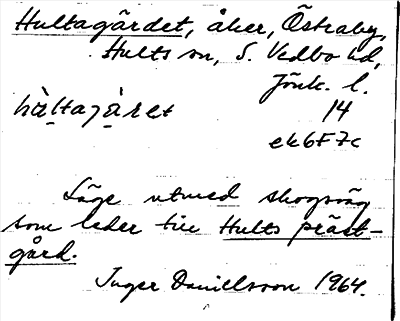 Hultagärdet, åker, Östraby,
Hults sn, S. Vedbo hd,
Jönk. l.
14
ek6F7c
Läge utmed skogsväg
som leder till Hults präst-
gård.
Inger Danielsson 1964.